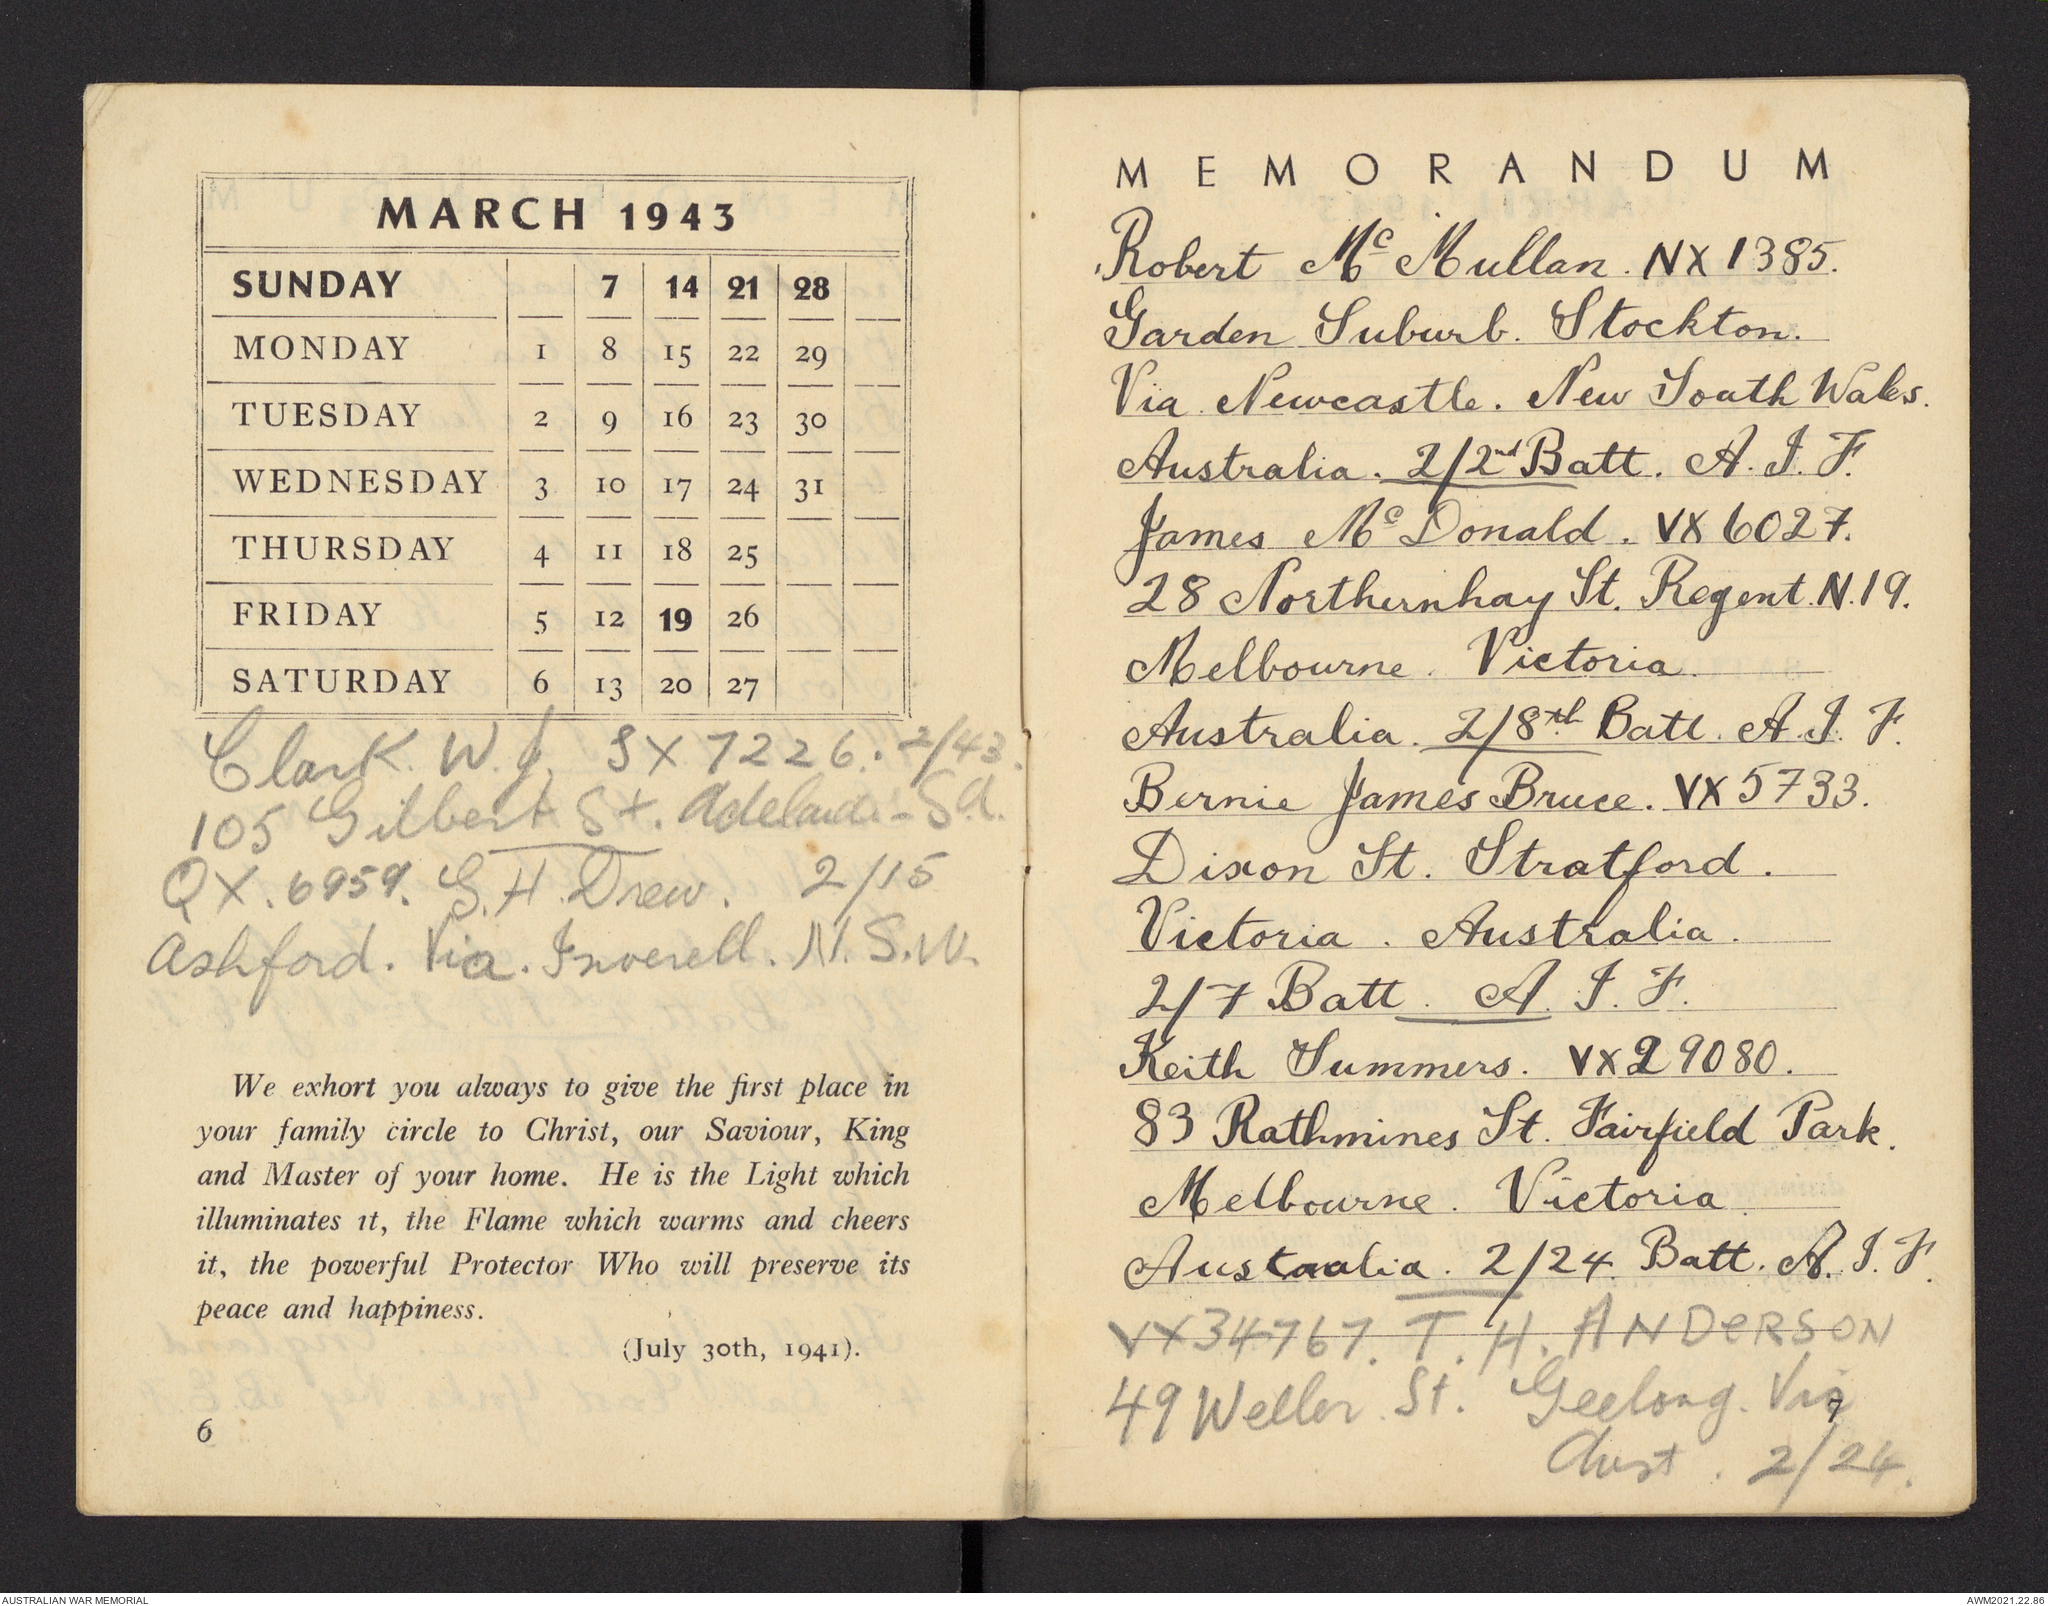 MARCH 1943
SUNDAY 7 14 21 28
MONDAY 1 8 15 22 29
TUESDAY 2 9 16 23 30
WEDNESDAY 3 10 17 24 31
THURSDAY 4 11 18 25
FRIDAY 5 12 19 26
SATURDAY 6 13 20 27
Clark. W. J. SX 7226. 2/43.
105 Gilbert St. Adelaide - S.A.
QX. 6959. G. H. Drew. 2/15
Ashford. Via. Inverell. N. S. W.
We exhort you always to give the first place in
your family circle to Christ, our Saviour, King
and Master of your home. He is the Light which
illuminates it, the Flame which warms and cheers
it, the powerful Protector Who will preserve its
peace and happiness.
(July 30th, 1941).
6
MEMORANDUM
Robert Mc Mullan. NX 1385.
Garden Suburb. Stockton.
Via Newcastle. New South Wales.
Australia. 2/2nd Batt. A. I. F.
James Mc Donald. VX 6027.
28 Northernhay St. Regent. N. 19.
Melbourne. Victoria.
Australia. 2/8th Batt. A. I. F.
Bernie James Bruce. VX 5733.
Dixon St. Stratford.
Victoria. Australia.
2/7 Batt. A. I. F.
Keith Summers. VX 29080.
83 Rathmines St. Fairfield Park.
Melbourne. Victoria.
Australia. 2/24 Batt. A. I. F.
VX34767. T. H. ANDERSON
49 Weller St. Geelong. Vic
Aust. 2/24.
AUSTRALIAN WAR MEMORIAL
AWM2021.22.86